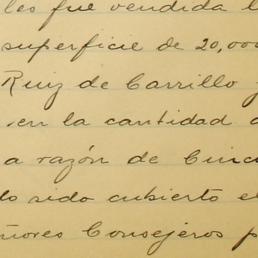 les fué vendida l
superficie de 20,000
Ruiz de Carrillo y
en la cantidad d
a razón de Cinc
do sido cubierto el
ñores Consejeros p